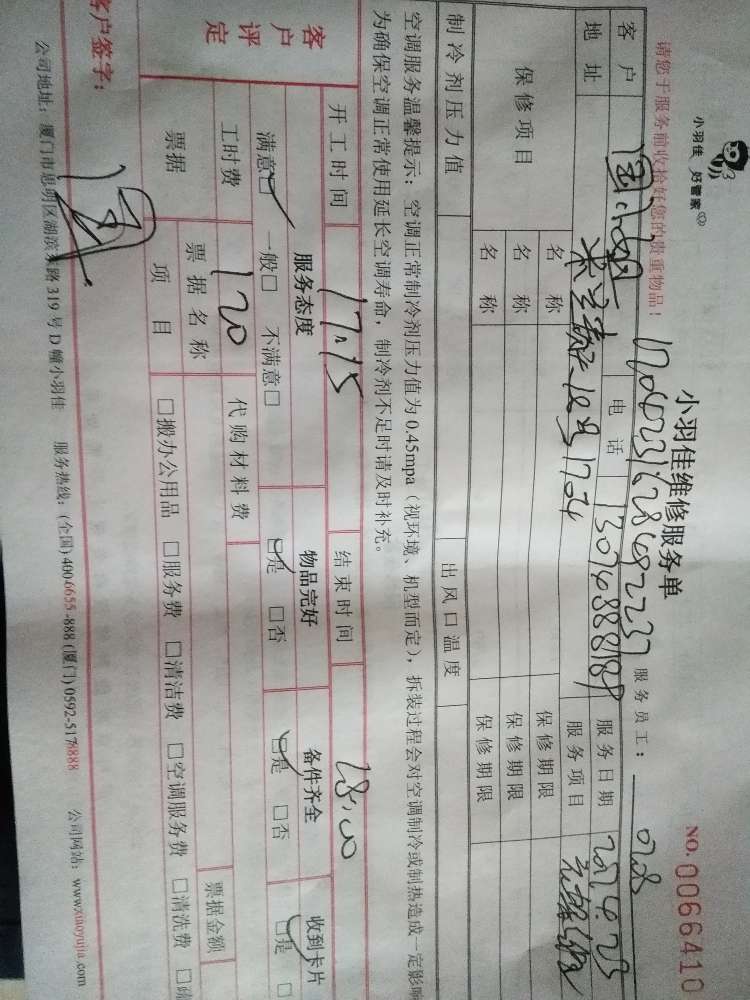 小羽佳 好管家
小羽佳维修服务单
NO. 0066410
请您于服务前收拾好您的贵重物品!
服务员工:
客户 电话 13074888189 服务日期
地址 服务项目
保修项目 名称 保修期限
名称 保修期限
名称 保修期限
制冷剂压力值 出风口温度
空调服务温馨提示:空调正常制冷剂压力值为0.45mpa(视环境、机型而定),拆装过程会对空调制冷或制热造成一定影响
为确保空调正常使用延长空调寿命,制冷剂不足时请及时补充。
开工时间 17:15 结束时间 18:00
客户评定 服务态度 物品完好 备件齐全 收到卡片
满意□ 一般□ 不满意□ □是 □否 □是 □否 □是 □
工时费 120 代购材料费
票据 票据名称 票据金额
项目 □搬办公用品 □服务费 □清洁费 □空调服务费 □清洗费
客户签字:
公司地址:厦门市思明区湖滨东路319号D幢小羽佳 服务热线:(全国)4006655-888(厦门)0592-5178888 公司网站:www.xiaoyujia.com